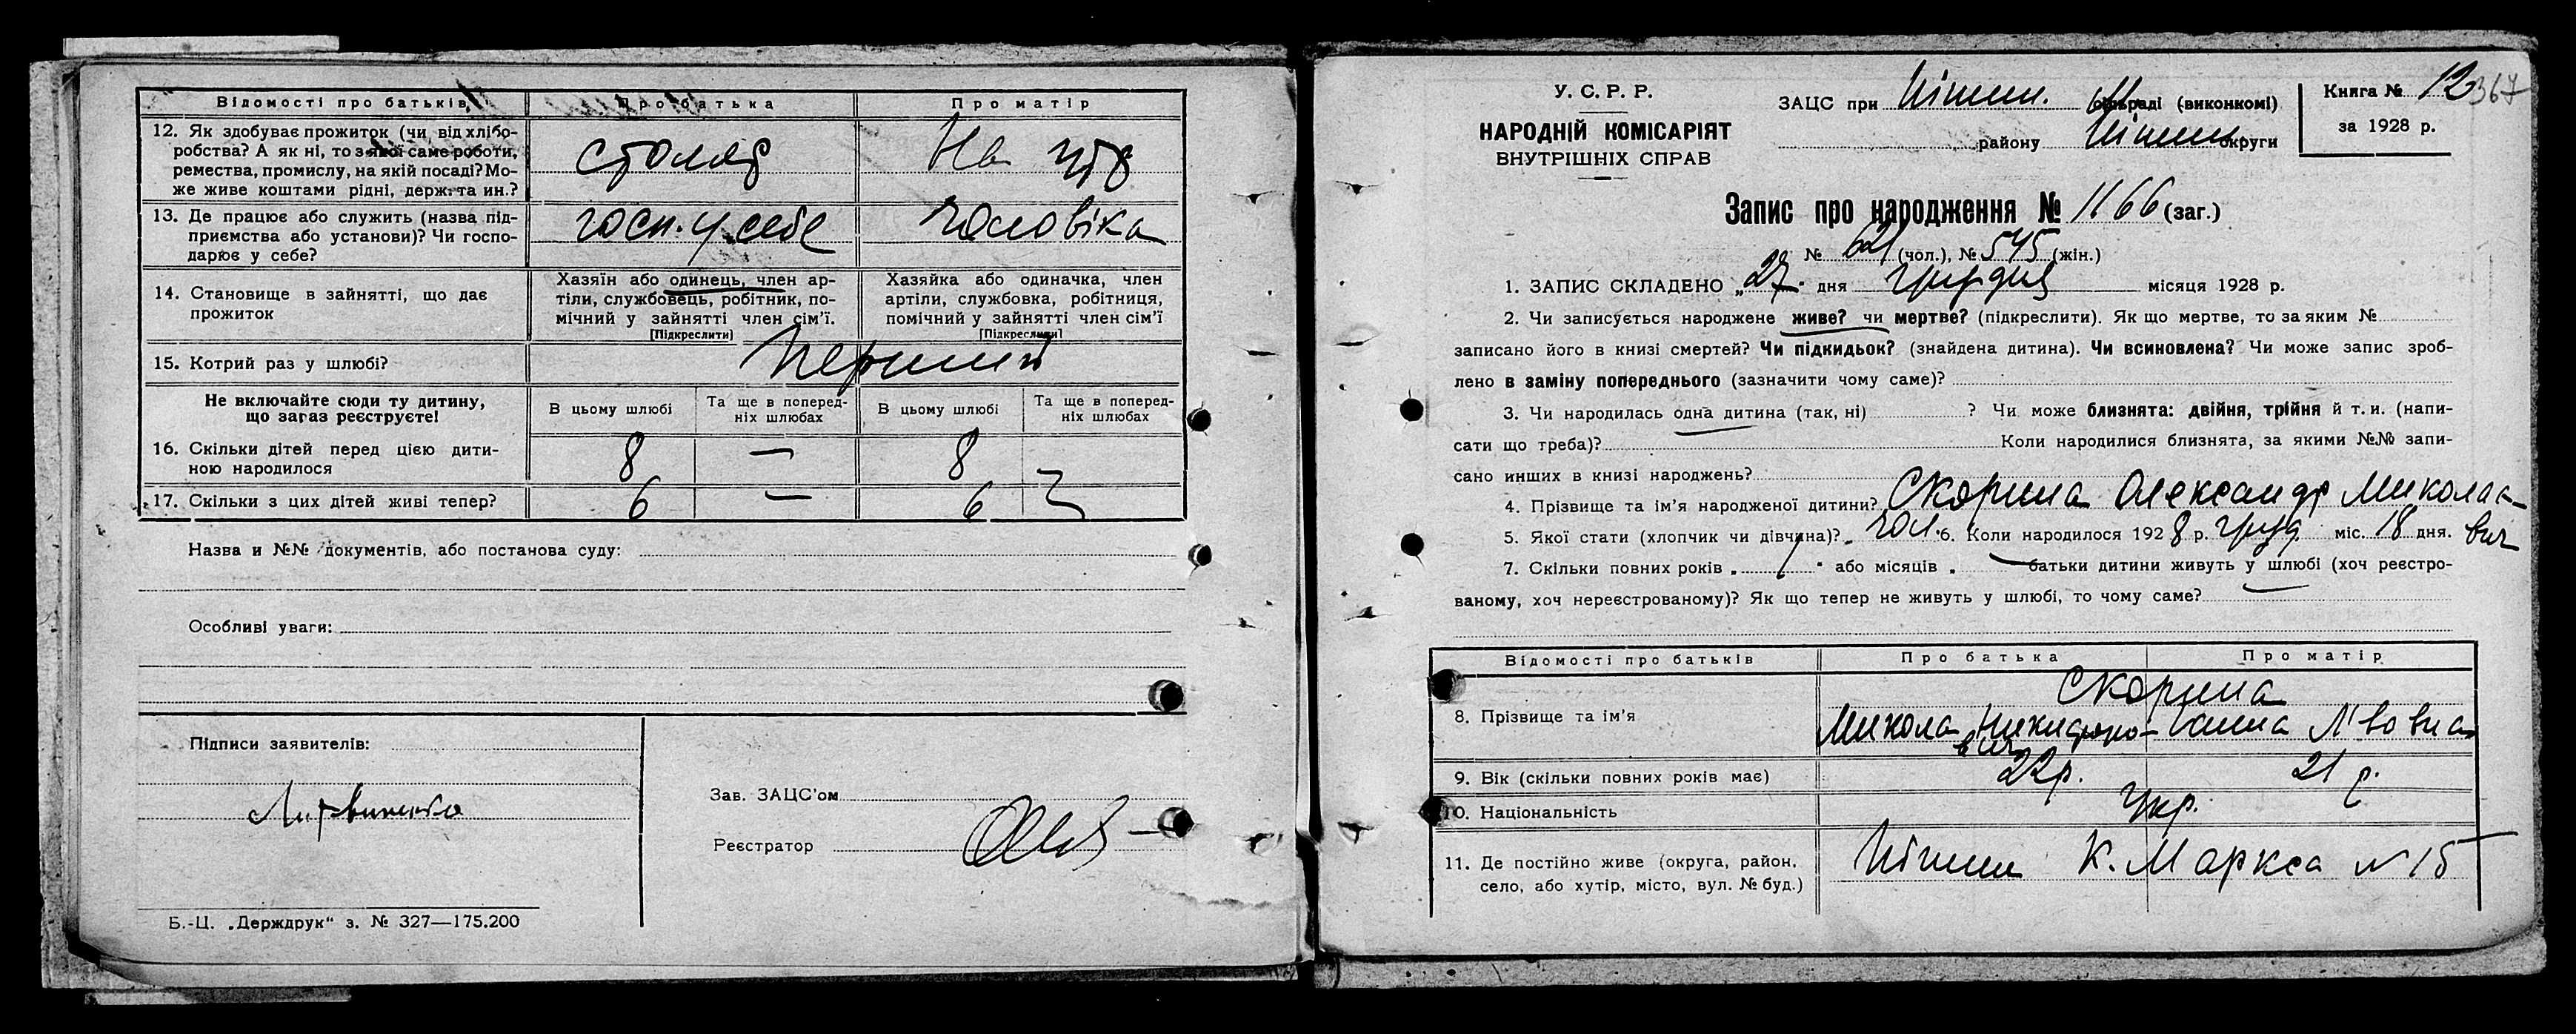 Відомості про батьків Про батька Про матір
12. Як здобуває прожиток (чи від хлібо-
робства? А як ні, то з якої саме роботи,
ремества, промислу, на якій посаді? Мо-
же живе коштами рідні, держ. та ин.?
столяр На утр
13. Де працює або служить (назва під-
приємства або установи)? Чи госпо-
дарює у себе?
госп. у себе чоловіка
14. Становище в зайнятті, що дає
прожиток
Хазяїн або одинець, член ар-
тіли, службовець, робітник, по-
мічний у зайнятті член сім'ї.
[Підкреслити]
Хазяйка або одиначка, член
артіли, службовка, робітниця,
помічний у зайнятті член сім'ї
[Підкреслити]
15. Котрий раз у шлюбі? Перший
Не включайте сюди ту дитину,
що загаз реєструєте!
В цьому шлюбі Та ще в поперед-
ніх шлюбах В цьому шлюбі Та ще в поперед-
ніх шлюбах
16. Скільки дітей перед цією дити-
ною народилося
8 — 8
17. Скільки з цих дітей живі тепер? 6 — 6
Назва и №№ документів, або постанова суду:
Особливі уваги:
Підписи заявителів:
Зав. ЗАЦС'ом
Реєстратор
Б.-Ц. „Держдрук“ з. № 327—175.200
У. С. Р. Р.
НАРОДНІЙ КОМІСАРІЯТ
ВНУТРІШНІХ СПРАВ
ЗАЦС при Ніжин. раді (виконкомі)
району Ніжин округи
Книга № 12 367
за 1928 р.
Запис про народження № 1166 (заг.)
№ 621 (чол.), № 545 (жін.)
1. ЗАПИС СКЛАДЕНО „27“ дня грудня місяця 1928 р.
2. Чи записується народжене живе? чи мертве? (підкреслити). Як що мертве, то за яким №
записано його в книзі смертей? Чи підкидьок? (знайдена дитина). Чи всиновлена? Чи може запис зроб-
лено в заміну попереднього (зазначити чому саме)?
3. Чи народилась одна дитина (так, ні) ? Чи може близнята: двійня, трійня й т. и. (напи-
сати що треба)? Коли народилися близнята, за якими №№ запи-
сано инших в книзі народжень?
4. Прізвище та ім'я народженої дитини? Скорина Олександр Миколає-
вич
5. Якої стати (хлопчик чи дівчина)? чол. 6. Коли народилося 1928 р. груд. міс. 18 дня.
7. Скільки повних років „ 1 “ або місяців „ — батьки дитини живуть у шлюбі (хоч реєстро-
ваному, хоч нереєстрованому)? Як що тепер не живуть у шлюбі, то чому саме?
Відомості про батьків Про батька Про матір
8. Прізвище та ім'я
Скорина
Микола Никифоро-
вич Ганна Львовна
9. Вік (скільки повних років має) 22 р. 21 р.
10. Національність Укр.
11. Де постійно живе (округа, район,
село, або хутір, місто, вул. № буд.)
Ніжин К. Маркса № 15